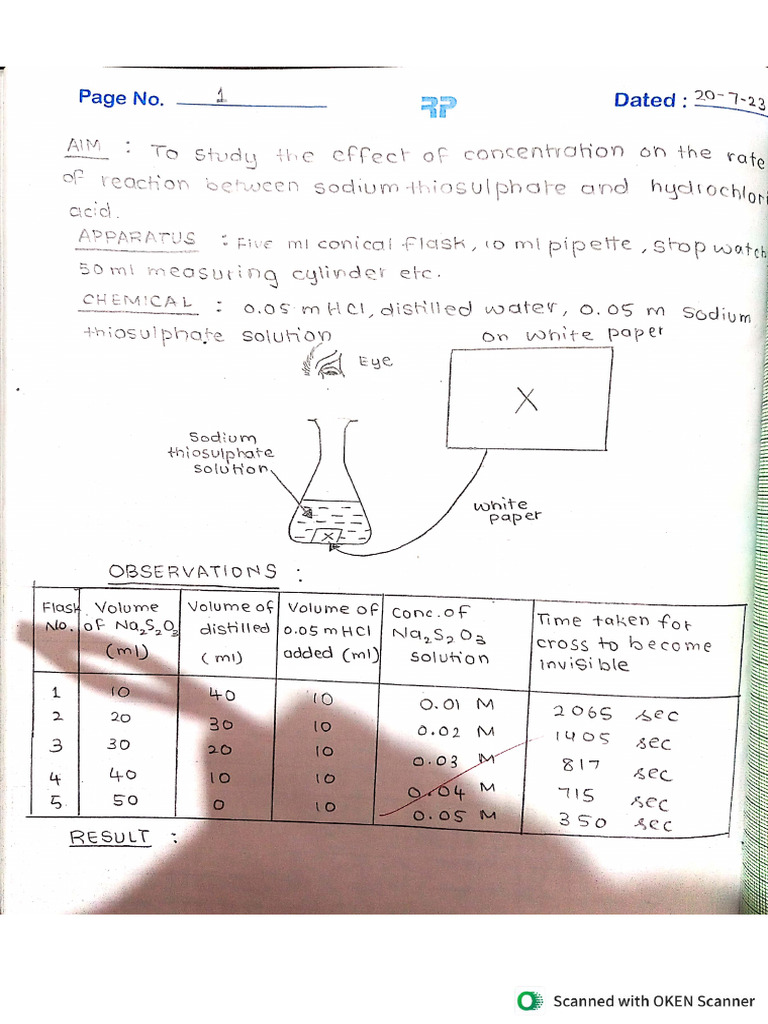 Page No. 1 RP Dated : 20-7-23
AIM : To study the effect of concentration on the rate
of reaction between sodium thiosulphate and hydrochlori
acid.
APPARATUS : Five ml conical flask, 10 ml pipette, stop watch,
50 ml measuring cylinder etc.
CHEMICAL : 0.05 m HCl, distilled water, 0.05 m sodium
thiosulphate solution
on white paper
Eye
X
Sodium
thiosulphate
solution
white
paper
X
OBSERVATIONS :
Flask No. | Volume of Na2S2O3 (ml) | Volume of distilled (ml) | Volume of 0.05 m HCl added (ml) | Conc. of Na2S2O3 solution | Time taken for cross to become invisible
1 | 10 | 40 | 10 | 0.01 M | 2065 sec
2 | 20 | 30 | 10 | 0.02 M | 1405 sec
3 | 30 | 20 | 10 | 0.03 M | 817 sec
4 | 40 | 10 | 10 | 0.04 M | 715 sec
5. | 50 | 0 | 10 | 0.05 M | 350 sec
RESULT :
Scanned with OKEN Scanner